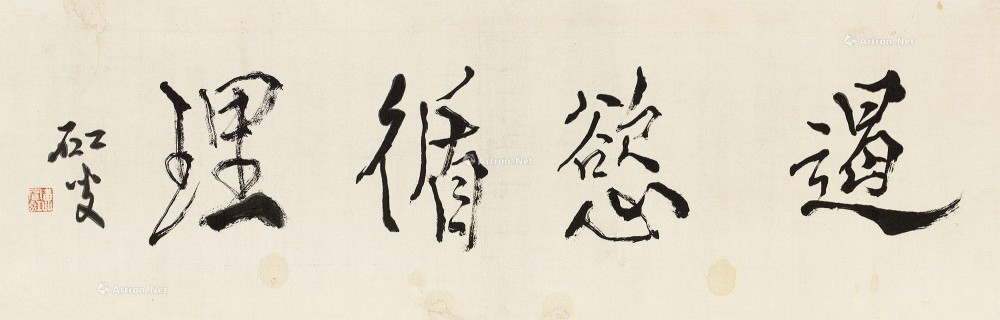 遏慾循理
矼叟
Artron.Net
Artron.Net
Artron.Net